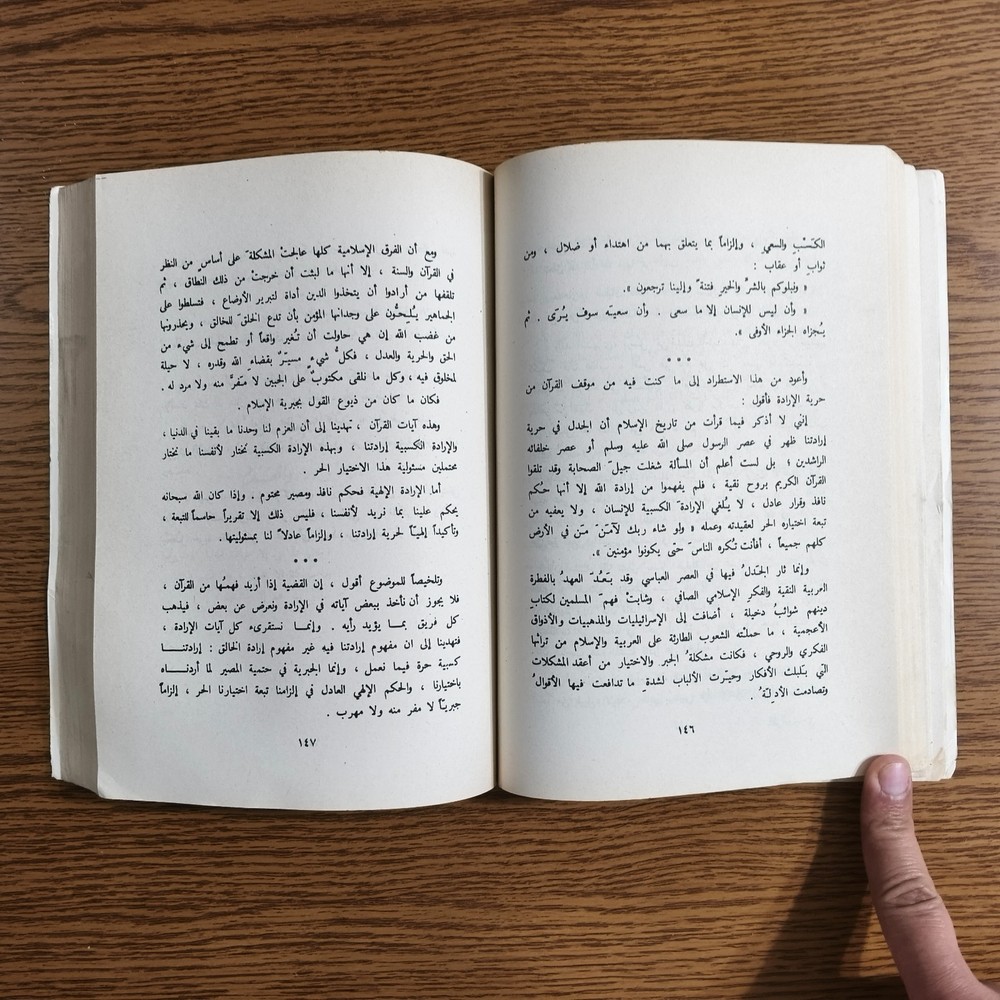 الكَسْبِ والسعي ، وإلزاماً بما يتعلق بهما من اهتداء أو ضلال ، ومن
ثوابٍ أو عقاب :
« ونبلوكم بالشرِّ والخيرِ فتنةً وإلينا ترجعون ».
« وأن ليس للإنسان إلا ما سعى . وأن سعيَه سوف يُرَى . ثم
يُجزاه الجزاء الأوفى ».
• • •
وأعود من هذا الاستطراد إلى ما كنت فيه من موقف القرآن من
حرية الإرادة فأقول :
إنني لا أذكر فيما قرأت من تاريخ الإسلام أن الجدل في حرية
إرادتنا ظهر في عصر الرسول صلى الله عليه وسلم أو عصر خلفائه
الراشدين ؛ بل لست أعلم أن المسألة شغلت جيلَ الصحابة وقد تلقوا
القرآن الكريم بروح نقية ، فلم يفهموا من إرادة الله إلا أنها حُكم
نافذ وقرار عادل ، لا يُلغي الإرادةَ الكسبية للإنسان ، ولا يعفيه من
تبعة اختياره الحر لعقيدته وعمله « ولو شاء ربك لآمَنَ مَن في الأرض
كلهم جميعاً ، أفأنت تُكره الناسَ حتى يكونوا مؤمنين ».
وإنما ثار الجَدلُ فيها في العصر العباسي وقد بَعُدَ العهدُ بالفطرة
العربية النقية والفكر الإسلامي الصافي ، وشابتْ فهمَ المسلمين لكتابِ
دينهم شوائبُ دخيلة ، أضافت إلى الإسرائيليات والمذهبيات والأذواق
الأعجمية ، ما حملتْه الشعوب الطارئة على العربية والإسلام من تراثها
الفكري والروحي ، فكانت مشكلةُ الجبر والاختيار من أعقد المشكلات
التي بَلبلت الأفكار وحيّرت الألباب لشدةِ ما تدافعت فيها الأقوالُ
وتصادمت الأدِلةُ .
١٤٦
ومع أن الفرق الإسلامية كلها عالجتْ المشكلةَ على أساسٍ من النظر
في القرآن والسنة ، إلا أنها ما لبثت أن خرجتْ من ذلك النطاق ، ثم
تلقفها من أرادوا أن يتخذوا الدين أداة لتبرير الأوضاع ، فتسلطوا على
الجماهير يُلِحُّون على وجدانها المؤمن بأن تدع الخلقَ للخالق ، ويحذرونها
من غضب الله إن هي حاولت أن تُغير واقعاً أو تطمح إلى شيء من
الحق والحرية والعدل ، فكلُّ شيءٍ مسيَّرٌ بقضاء الله وقدره ، لا حيلة
لمخلوق فيه ، وكل ما نلقى مكتوبٌ على الجبين لا مَفرَّ منه ولا مرد له .
فكان ما كان من ذيوع القول بجبرية الإسلام .
وهذه آيات القرآن ، تهدينا إلى أن العزم لنا وحدنا ما بقينا في الدنيا ،
والإرادة الكسبية إرادتنا ، وبهذه الإرادة الكسبية نختار لأنفسنا ما نختار
محتملين مسئولية هذا الاختيار الحر .
أما الإرادة الإلهية فحكم نافذ ومصير محتوم . وإذا كان الله سبحانه
يحكم علينا بما نريد لأنفسنا ، فليس ذلك إلا تقريراً حاسماً للتبعة ،
وتأكيداً إلهيًّا لحرية إرادتنا ، وإلزاماً عادلاً لنا بمسئوليتها .
• • •
وتلخيصاً للموضوع أقول ، إن القضية إذا أريد فهمُها من القرآن ،
فلا يجوز أن نأخذ ببعض آياته في الإرادة ونعرض عن بعض ، فيذهب
كل فريق بما يؤيد رأيه . وإنما نستقرىء كل آيات الإرادة ،
فتهدينا إلى ان مفهوم إرادتنا فيه غير مفهوم إرادة الخالق : إرادتنا
كسبية حرة فيما نعمل ، وإنما الجبرية في حتمية المصير لما أردناه
باختيارنا ، والحكم الإلهي العادل في إلزامنا تبعة اختيارنا الحر ، إلزاماً
جبريًّا لا مفر منه ولا مهرب .
١٤٧